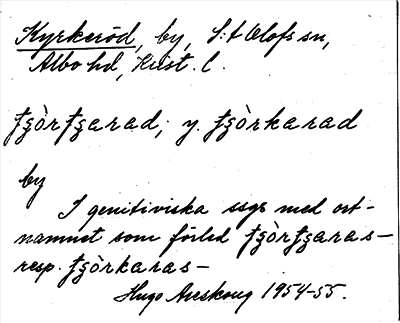 Kyrkeröd, by, S:t Olofs sn,
Albo hd, Krist. l.
fʒòrfʒarad; y. fʒòrkarad
by
I genitiviska ssgr med ort-
namnet som förled fʒòrfʒaras-
resp. fʒòrkaras-
Hugo Areskoug 1954-55.